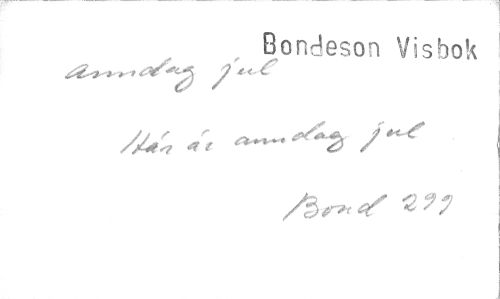 Bondeson Visbok
anndag jul
Här är anndag jul
Bond 299